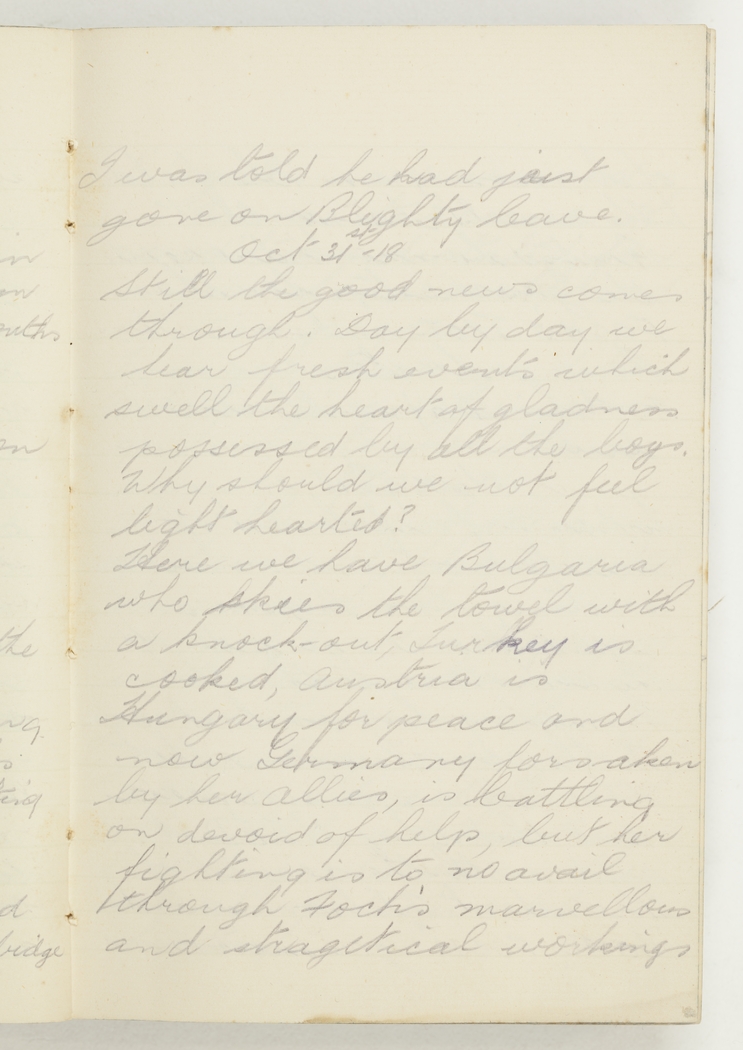 I was told he had just
gone on Blighty leave.
Oct 31st - 18
Still the good news comes
through. Day by day we
hear fresh events which
swell the heart of gladness
possessed by all the boys.
Why should we not feel
light hearted?
Here we have Bulgaria
who skies the towel with
a knock-out, Turkey is
cooked, Austria is
Hungary for peace and
now Germany forsaken
by her allies, is battling
on devoid of help, but her
fighting is to no avail
through Foch's marvellous
and stragetical workings